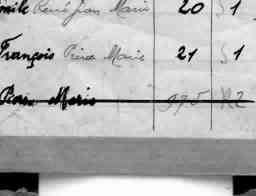 mile René Jean Marie 20 S 1
François Pierre Marie 21 S 1
Marie 995 R2